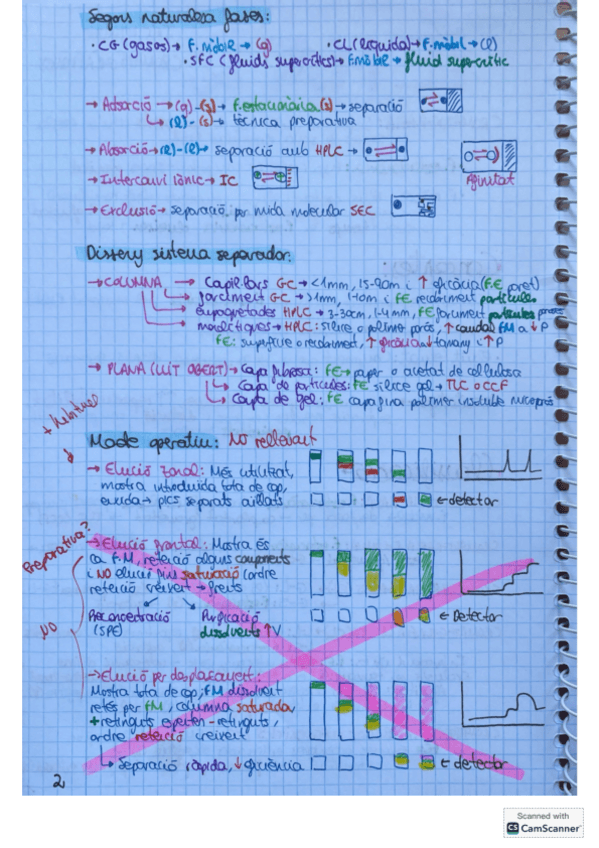 Segons naturalesa fases:
· CG (gasos) → F. mòbil → (g)
· CL (líquida) → F. mòbil → (l)
· SFC (fluids supercrítics) → F. mòbil → fluid supercrític
→ Adsorció → (g)-(s) → f. estacionària (s) → separació
↳ (l)-(s) → tècnica preparativa
→ Absorció → (l)-(l) → separació amb HPLC →
Afinitat
→ Intercanvi iònic → IC
→ Exclusió → separació per mida molecular SEC
Disseny sistema separador:
→ COLUMNA → Capil·lars GC → <1mm, 15-90m i ↑ eficàcia (FE paret)
↳ farciment GC → >1mm, 1-10m i FE recobriment partícules
↳ empaquetades HPLC → 3-30cm, 1-4mm, FE farciment partícules poroses
monolítiques → HPLC: sílice o polímer porós, ↑ caudal FM a ↓ P
FE: superfície o recobriment, ↑ eficàcia ↓ tamany i ↑ P
→ PLANA (LLIT OBERT) → Capa fibrosa: FE → paper o acetat de cel·lulosa
↳ Capa de partícules: FE sílice gel → TLC o CCF
↳ Capa de gel: FE capa fina polímer insoluble
+ habitual
Mode operatiu: NO rellevant
→ Elució zonal: Més utilitzat,
mostra introduida tota de cop,
eixida → pics separats aïllats
← detector
Preparativa?
→ Elució frontal: Mostra és
la F.M, retenció alguns components
i NO elució fins saturació (ordre
retenció creixent → fronts
NO
Preconcentració
(SPE)
Purificació
dissolvents ↑V
← Detector
→ Elució per desplaçament:
Mostra tota de cop; FM dissolvent
retés per FM, columna saturada
+ retinguts - retinguts,
ordre retenció creixent
↳ Separació ràpida, ↓ eficiència
← detector
2
Scanned with
CS CamScanner